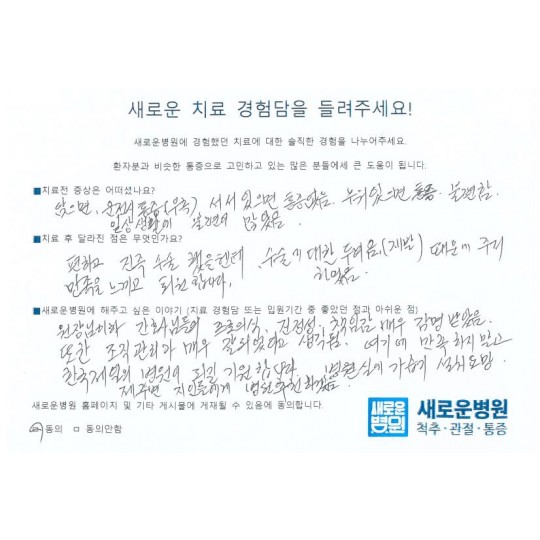 새로운 치료 경험담을 들려주세요!
새로운병원에 경험했던 치료에 대한 솔직한 경험을 나누어주세요.
환자분과 비슷한 통증으로 고민하고 있는 많은 분들에세 큰 도움이 됩니다.
■치료전 증상은 어떠셨나요?
앉으면, 운전시 통증(우측) 서서 있으면 통증있음. 누워있으면 통증 불편함.
일상생활이 불편이 많았음.
■치료 후 달라진 점은 무엇인가요?
편하고 진즉 수술 했을텐데 수술에 대한 두려움(재발) 때문에 주저
만족을 느끼고 퇴원합니다. 하였음.
■새로운병원에 해주고 싶은 이야기 (치료 경험담 또는 입원기간 중 좋았던 점과 아쉬운 점)
원장님이하 간호사님들의 프로의식, 진정성, 책임감 매우 감명 받았음.
또한 조직관리가 매우 잘되었다고 생각됨. 여기에 만족하지 말고
한국제일의 병원이 되길 기원합니다. 병원실에 가습기 설치요망
제주변 지인들에게 병원추천하겠음.
새로운병원 홈페이지 및 기타 게시물에 게재될 수 있음에 동의합니다.
동의 ㅁ 동의안함
새로운병원
새로운병원
척추·관절·통증